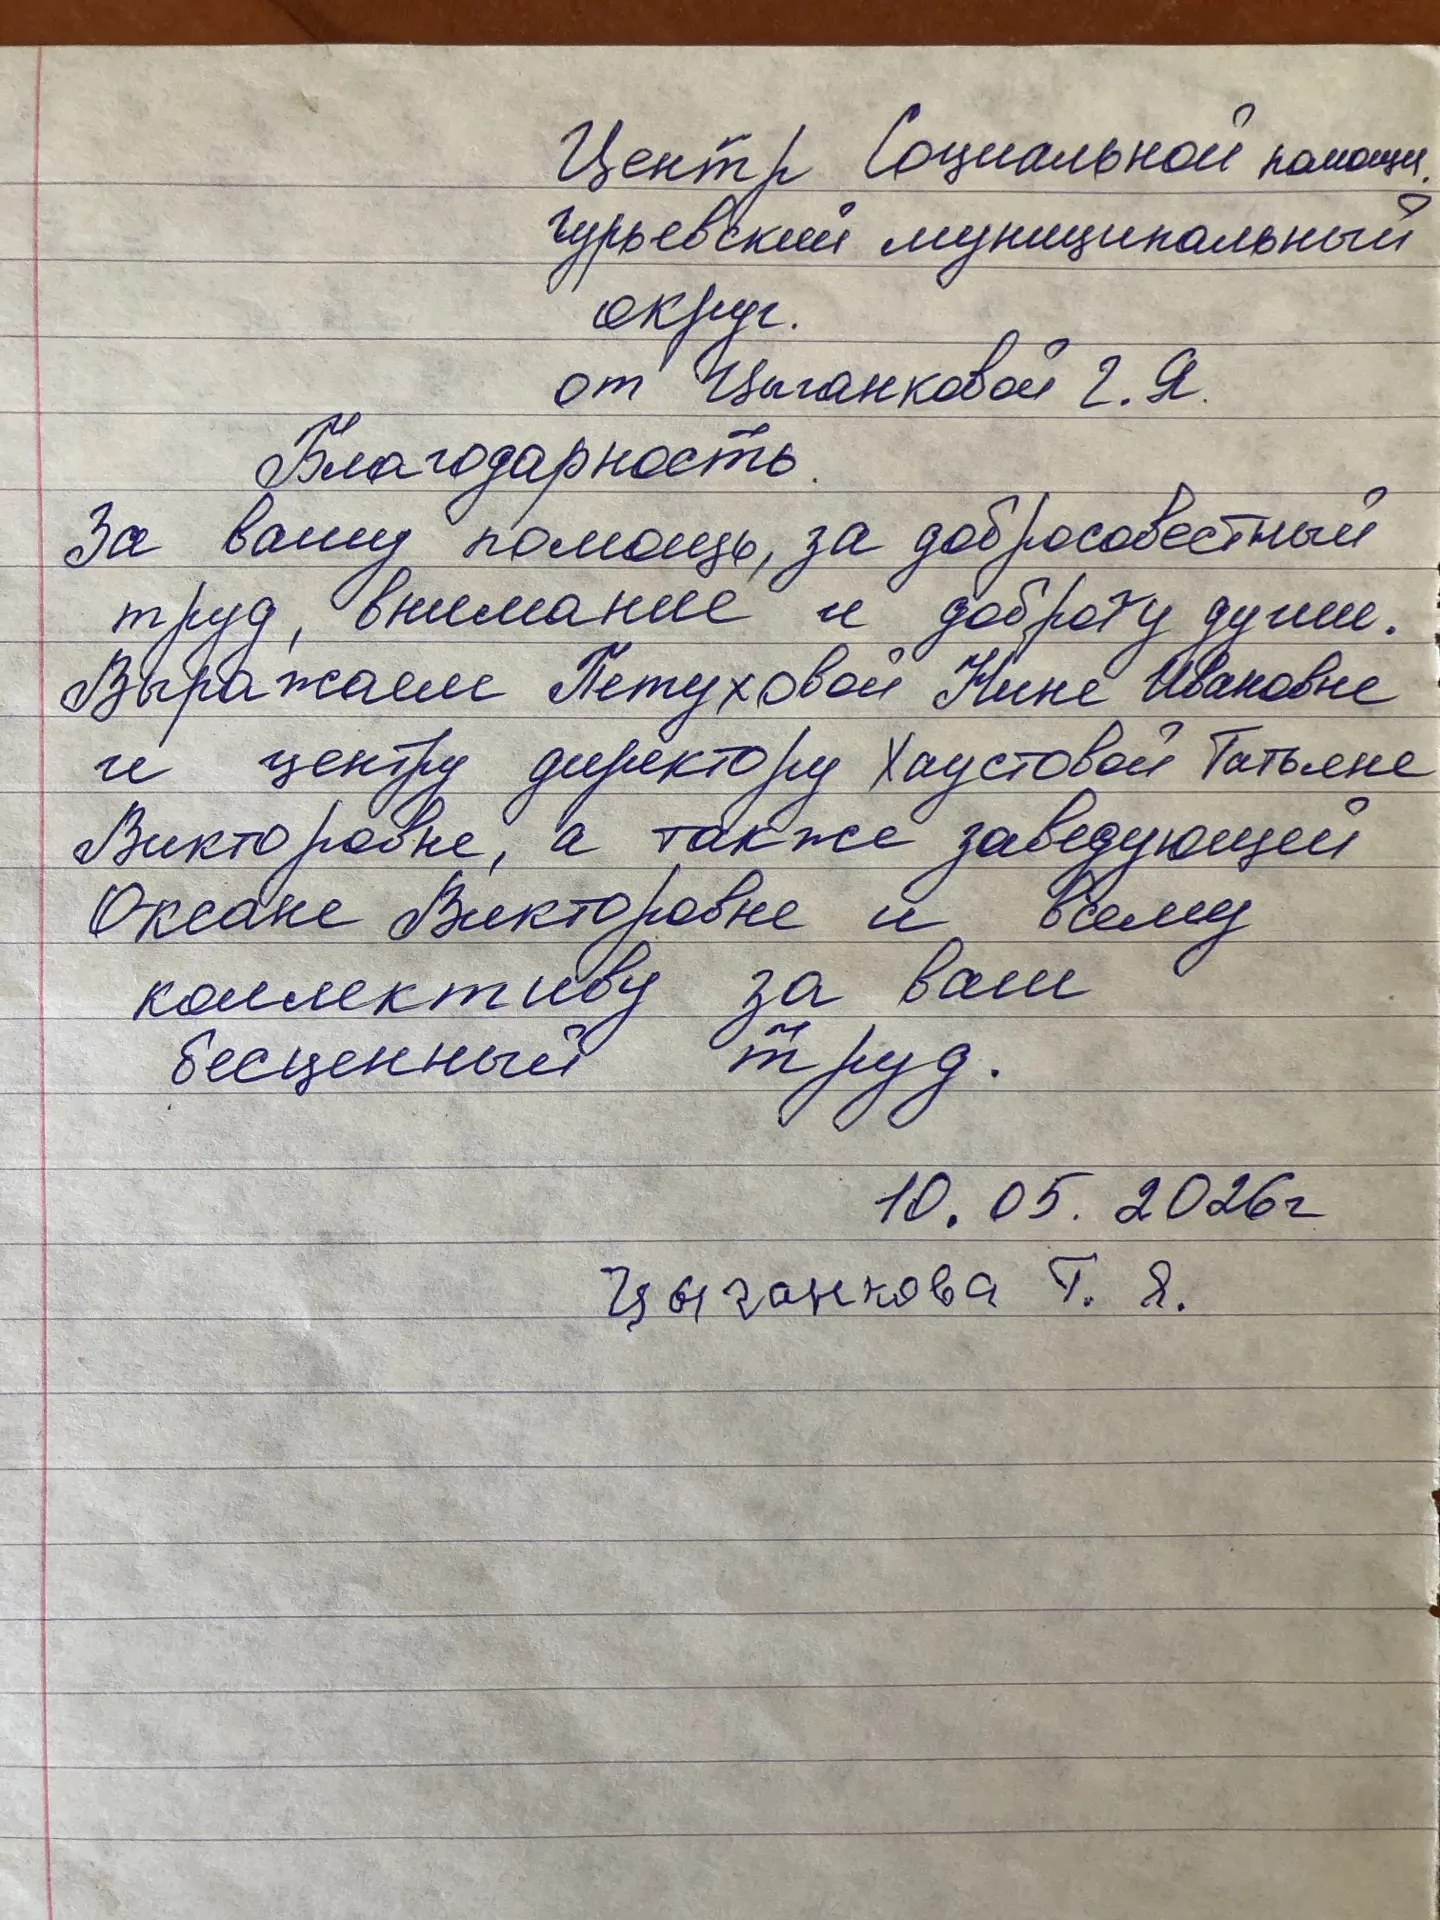 Центр Социальной помощи.
Гурьевский муниципальный
округ.
от Цыганковой Г. Я.
Благодарность.
За вашу помощь, за добросовестный
труд, внимание и доброту души.
Выражаем Петуховой Нине Ивановне
и центру директору Хаустовой Татьяне
Викторовне, а также заведующей
Оксане Викторовне и всему
коллективу за ваш
бесценный труд.
10. 05. 2026г
Цыганкова Г. Я.